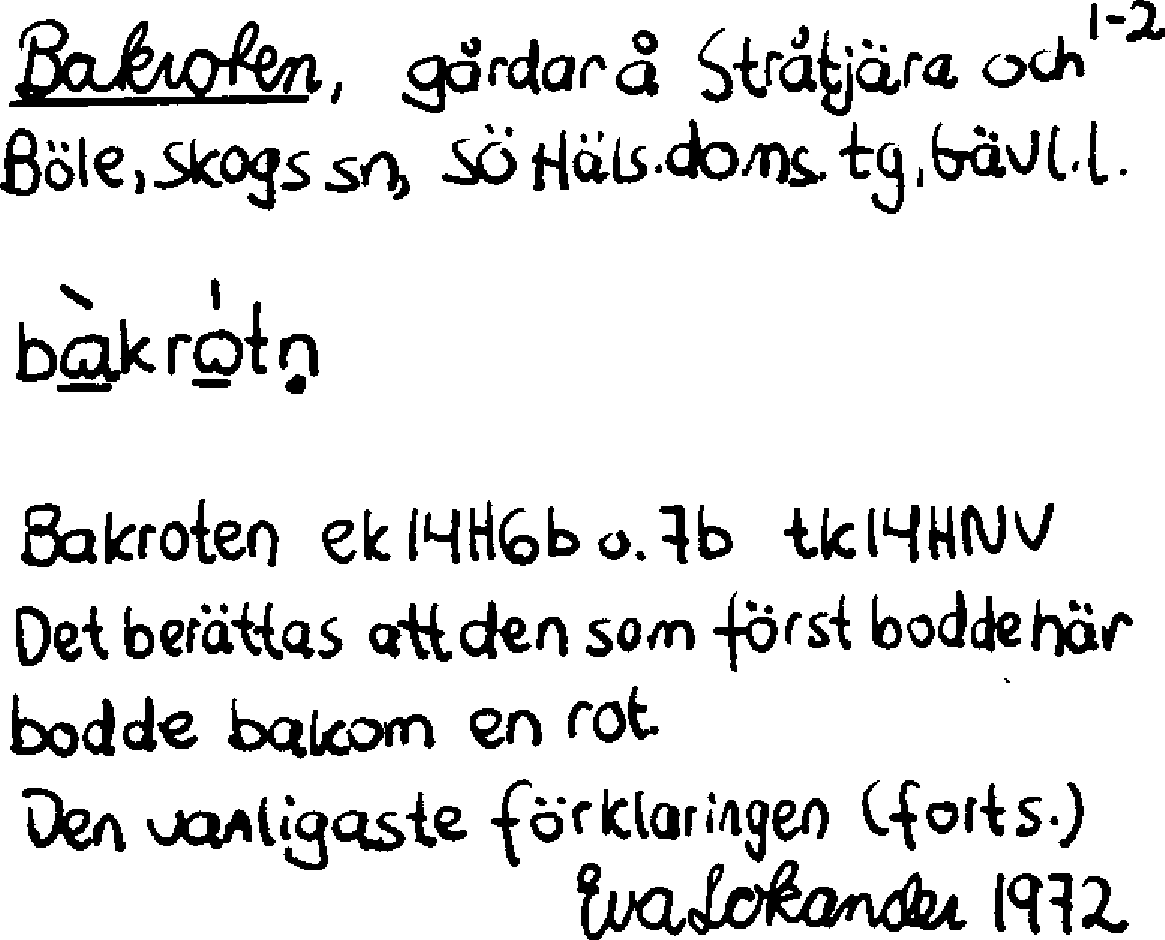 Bakroten, gårdar å Stråtjära och 1-2
Böle, Skogs sn, SÖ Häls. doms. tg, Gävl. l.
Bakroten ek 14H6b o. 7b tk 14HNV
Det berättas att den som först bodde här
bodde bakom en rot.
Den vanligaste förklaringen (forts.)
Eva Lokander 1972